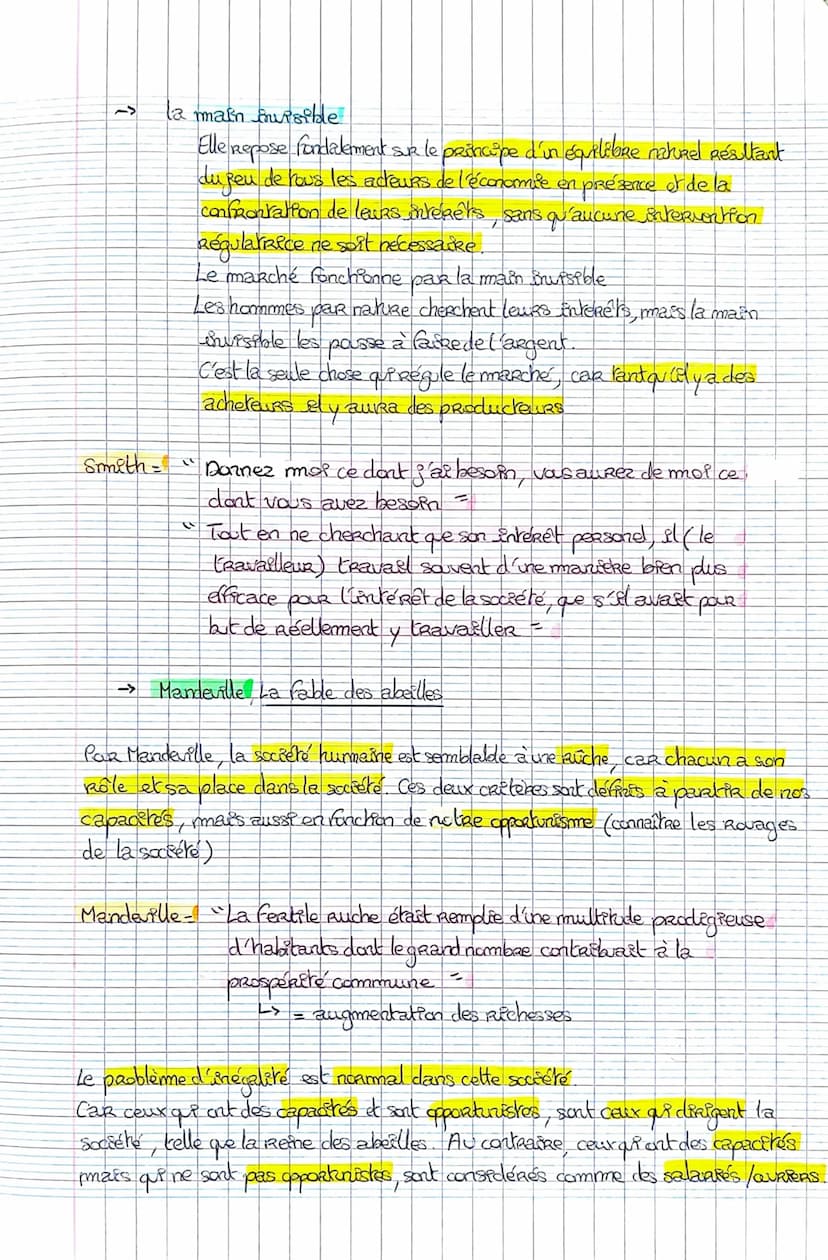 → la main invisible
Elle repose fondalement sur le principe d'un équilibre naturel résultant
du jeu de tous les acteurs de l'économie en présence et de la
confrontation de leurs intérêts, sans qu'aucune intervention
régulatrice ne soit nécessaire.
Le marché fonctionne par la main invisible
Les hommes par nature cherchent leurs intérêts, mais la main
invisible les pousse à faire de l'argent.
C'est la seule chose qui régule le marché, car tant qu'il y a des
acheteurs il y aura des producteurs
Smith = " Donnez moi ce dont j'ai besoin, vous aurez de moi ce
dont vous avez besoin "
" Tout en ne cherchant que son intérêt personnel, il (le
travailleur) travail souvent d'une manière bien plus
efficace pour l'intérêt de la société, que s'il avait pour
but de réellement y travailler "
→ Mandeville, La fable des abeilles
Par Mandeville, la société humaine est semblable à une ruche, car chacun a son
rôle et sa place dans la société. Ces deux critères sont définis à partir de nos
capacités, mais aussi en fonction de notre opportunisme (connaître les rouages
de la société)
Mandeville = "La fertile ruche était remplie d'une multitude prodigieuse
d'habitants dont le grand nombre contribuait à la
prospérité commune "
↳ = augmentation des richesses
Le problème d'inégalité est normal dans cette société.
Car ceux qui ont des capacités et sont opportunistes, sont ceux qui dirigent la
société, telle que la Reine des abeilles. Au contraire, ceux qui ont des capacités
mais qui ne sont pas opportunistes, sont considérés comme des salariés / ouvriers.